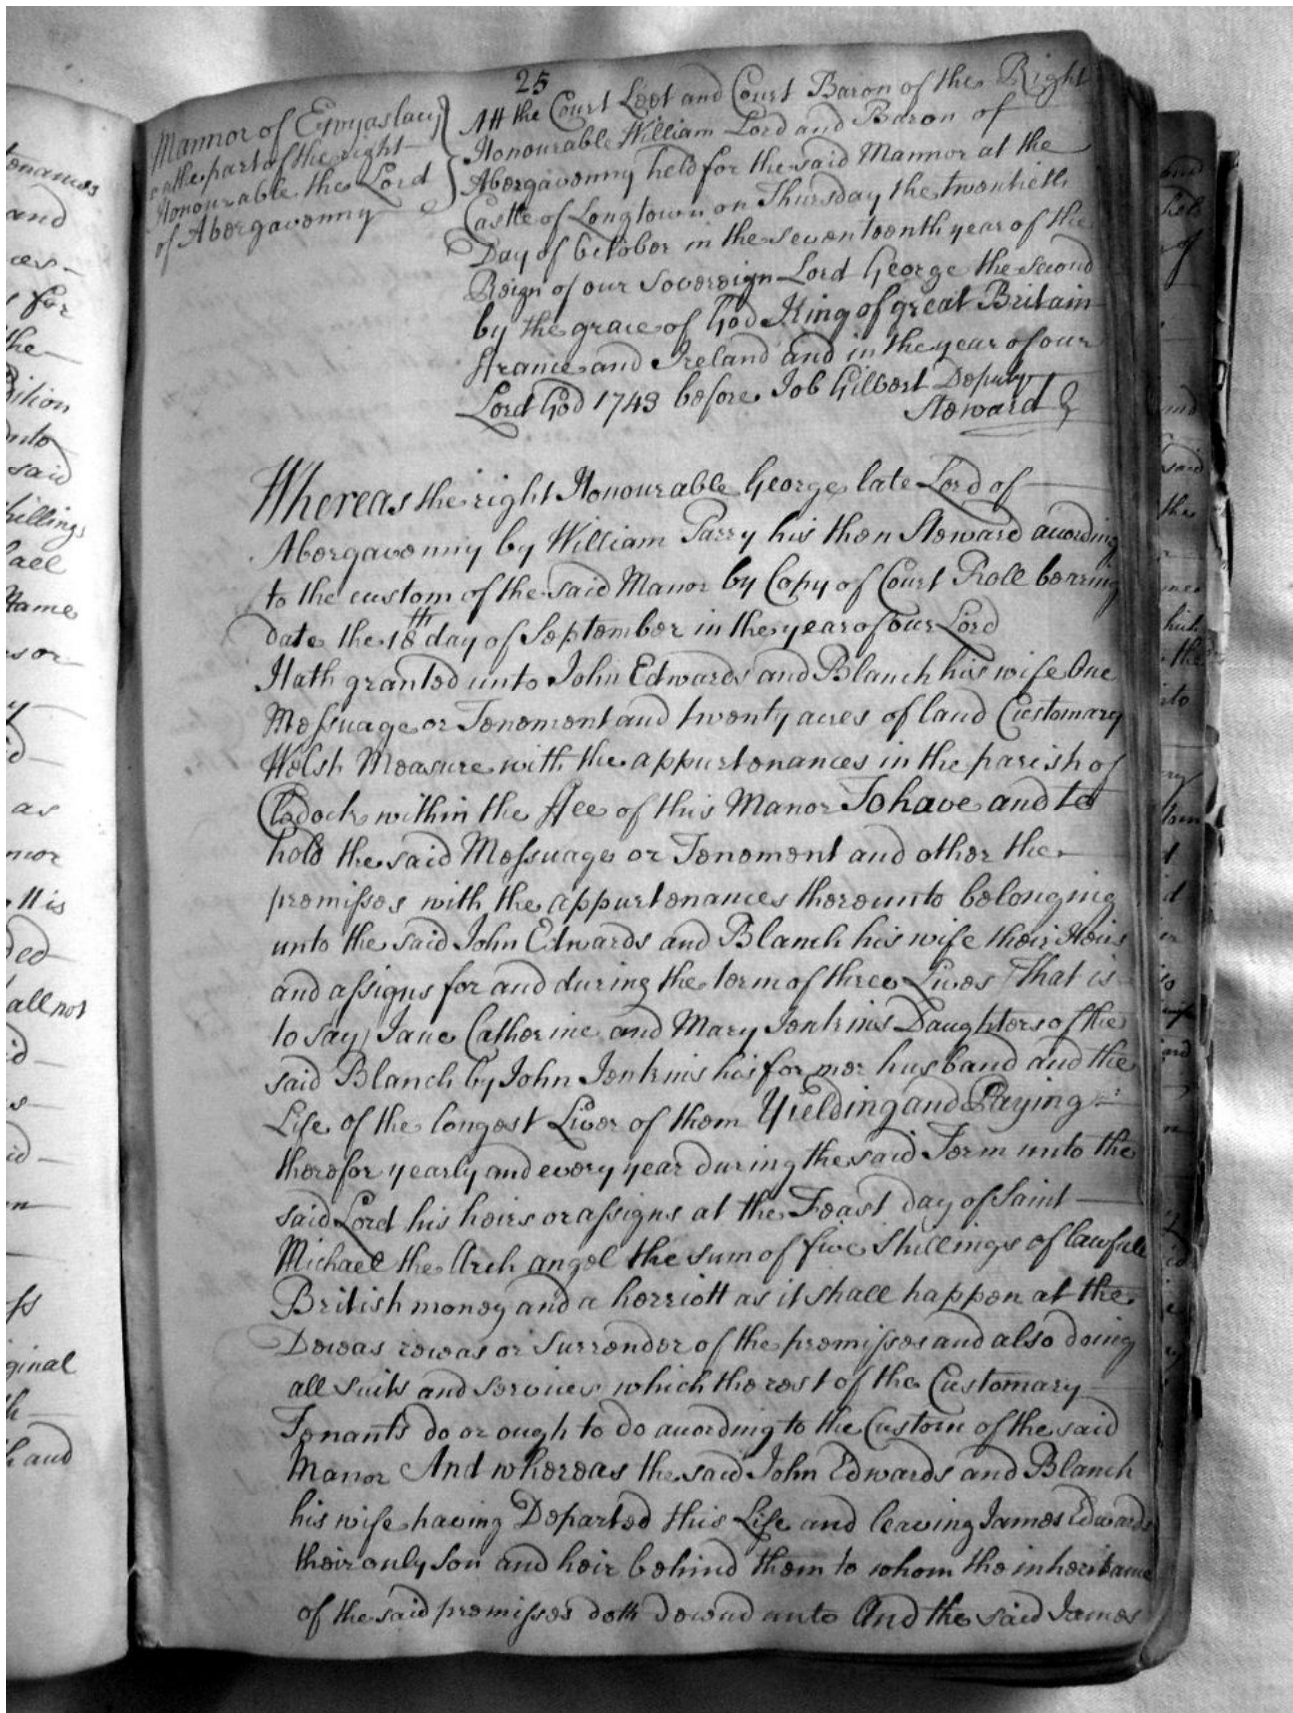 25
Mannor of Ewyaslacy
eathe part of the right
Honourable the Lord
of Abergavenny
Att the Court Leet and Court Baron of the Right
Honourable William Lord and Baron of
Abergavenny held for the said Mannor at the
Castle of Longtown on Thursday the twentieth
Day of October in the seventeenth year of the
Reign of our Sovereign Lord George the second
by the grace of God King of great Britain
France and Ireland and in the year of our
Lord God 1743 before Job Gilbert Deputy
Steward
Whereas the right Honourable George late Lord of
Abergavenny by William Parry his then Steward according
to the custom of the said Manor by Copy of Court Roll bearing
date the 18th day of September in the year of our Lord
Hath granted unto John Edwards and Blanch his wife One
Messuage or Tenement and twenty acres of land Customary
Welsh Measure with the appurtenances in the parish of
Clodock within the ffee of this Manor To have and to
hold the said Messuage or Tenement and other the
premisses with the appurtenances thereunto belonging
unto the said John Edwards and Blanch his wife their Heirs
and assigns for and during the term of three Lives (That is
to say) Jane Catherine and Mary Jenkins Daughters of the
said Blanch by John Jenkins his former husband and the
Life of the longest Liver of them Yielding and Paying
therefor yearly and every year during the said Term unto the
said Lord his heirs or assigns at the Feast day of Saint
Michael the Arch angel the sum of five Shillings of lawfull
British money and a herriott as it shall happen at the
or Surrender of the premisses and also doing
all suits and services which the rest of the Customary
Tenants do or ough to do according to the Custom of the said
Manor And whereas the said John Edwards and Blanch
his wife having Departed this Life and leaving James Edwards
their only Son and heir behind them to whom the inheritance
of the said premisses doth unto And the said James